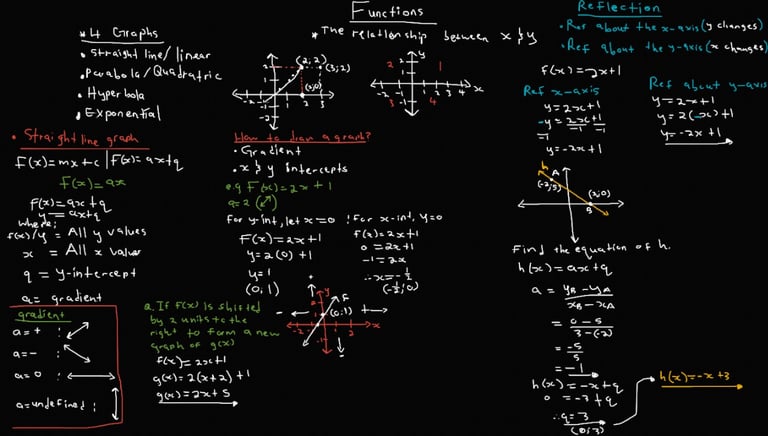 Functions
* The relationship between x & y
* 4 Graphs
• Straight line/linear
• Parabola/Quadratic
• Hyperbola
• Exponential
• Straight line graph
F(x)=mx+c | F(x)=ax+q
F(x)=ax
F(x)=ax+q
y=ax+q
where:
f(x)/y = All y values
x = All x values
q = y-intercept
a = gradient
gradient
a=+ :
a=- :
a=0 :
a=undefined :
2
1
-2
-1
1
2
3
-1
-2
(2;2)
(3;2)
(2;0)
y
2
1
3
4
x
How to draw a graph?
• Gradient
• x & y intercepts
e.g F(x)=2x+1
a=2
For y-int, let x=0
F(x)=2x+1
y=2(0)+1
y=1
(0;1)
! For x-int, y=0
f(x)=2x+1
0=2x+1
-1=2x
∴x=-½
(-½;0)
a. If f(x) is shifted
by 2 units to the
right to form a new
graph of g(x)
f(x)=2x+1
g(x)=2(x+2)+1
g(x)=2x+5
y
f
(0;1)
x
Reflection
• Ref about the x-axis (y changes)
• Ref about the y-axis (x changes)
f(x)=2x+1
Ref x-axis
y=2x+1
-y=2x+1
-1 -1 -1
y=-2x+1
Ref about y-axis
y=2x+1
y=2(-x)+1
y=-2x+1
h
A
(-2;5)
(3;0)
B
Find the equation of h.
h(x)=ax+q
a = yB-yA
xB-xA
= 0-5
3-(-2)
= -5
5
= -1
h(x)=-x+q
0 =-3+q
∴q=3
(0;3)
h(x)=-x+3